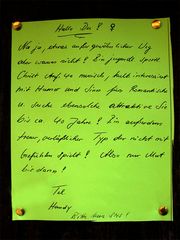 Hallo Du ! ♀
Na ja, etwas außergewöhnlicher Weg
aber warum nicht? Bin jugendl. sportl.
Christ Anf. 40 musisch, kult. interessiert
mit Humor und Sinn für Romantische
u. suche ebensolche attraktive Sie
bis ca. 40 Jahre? Bin aufrechter
treuer, verläßlicher Typ der nicht mit
Gefühlen spielt! Also nur Mut
bis dann!
Tel
Handy
Bitte kein SMS!